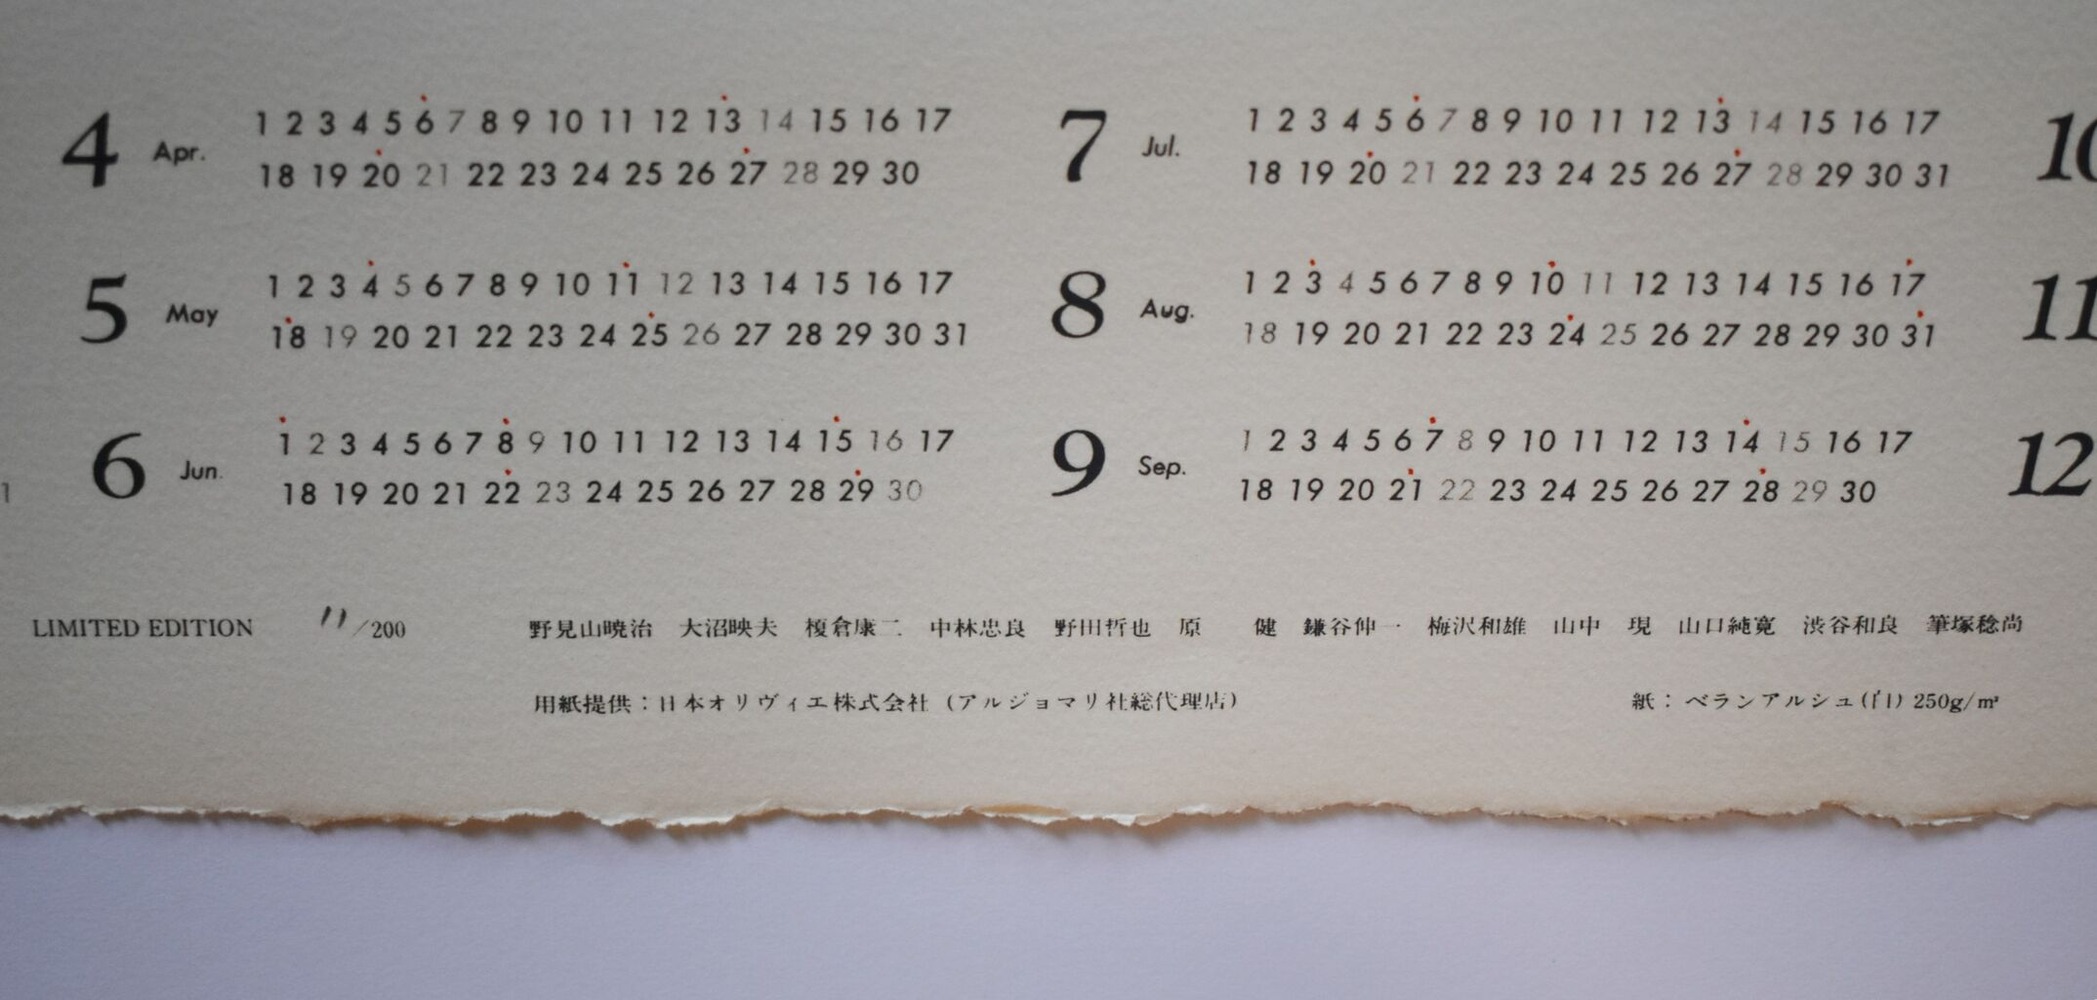 4 Apr. 1 2 3 4 5 6 7 8 9 10 11 12 13 14 15 16 17
18 19 20 21 22 23 24 25 26 27 28 29 30
7 Jul. 1 2 3 4 5 6 7 8 9 10 11 12 13 14 15 16 17
18 19 20 21 22 23 24 25 26 27 28 29 30 31
10
5 May 1 2 3 4 5 6 7 8 9 10 11 12 13 14 15 16 17
18 19 20 21 22 23 24 25 26 27 28 29 30 31
8 Aug. 1 2 3 4 5 6 7 8 9 10 11 12 13 14 15 16 17
18 19 20 21 22 23 24 25 26 27 28 29 30 31
11
6 Jun. 1 2 3 4 5 6 7 8 9 10 11 12 13 14 15 16 17
18 19 20 21 22 23 24 25 26 27 28 29 30
9 Sep. 1 2 3 4 5 6 7 8 9 10 11 12 13 14 15 16 17
18 19 20 21 22 23 24 25 26 27 28 29 30
12
LIMITED EDITION 11/200 野見山暁治 大沼映夫 榎倉康二 中林忠良 野田哲也 原 健 鎌谷伸一 梅沢和雄 山中 現 山口純寛 渋谷和良 筆塚稔尚
用紙提供：日本オリヴィエ株式会社（アルジョマリ社総代理店） 紙：ベランアルシュ(白) 250g/m²